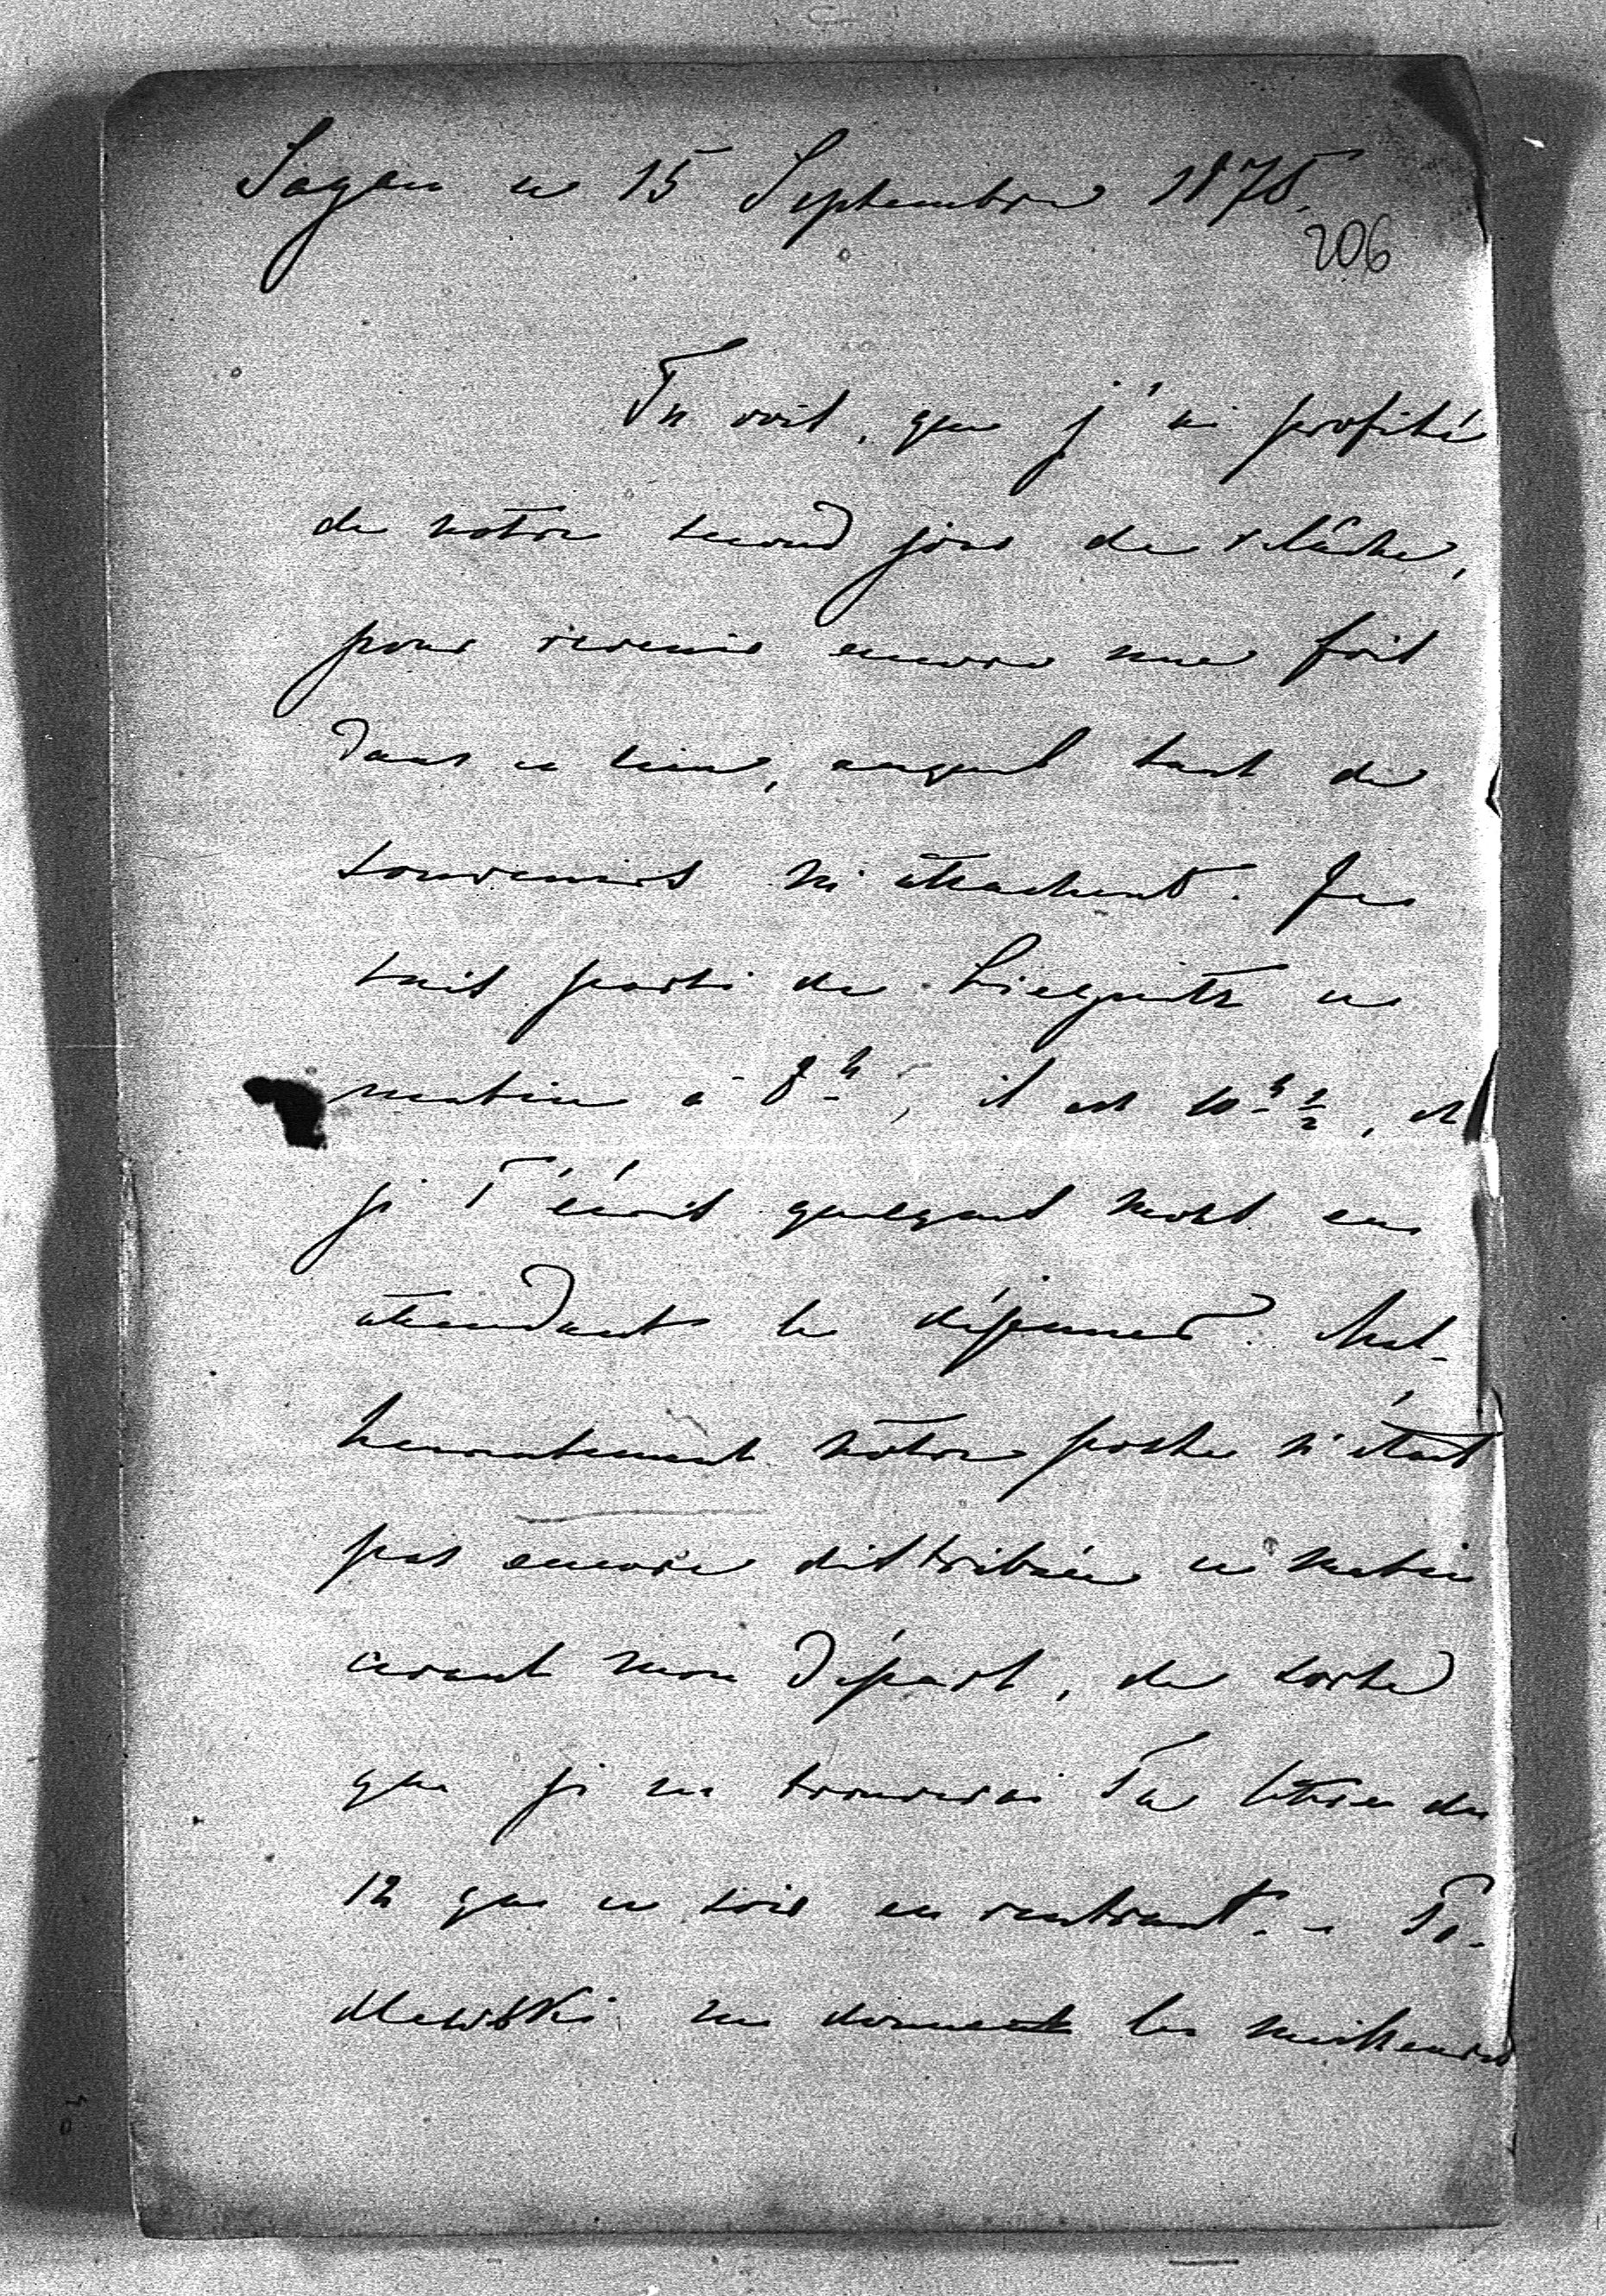 Sagan ce 15 Septembre 1875.
206
Tu vois, que j'ai profité
de notre second jour de relâche,
pour revenir encore une fois
dans ce lieu, auquel tant de
souvenirs m'attachent. Je
suis parti de Liegnitz ce
matin à 8 h, il est 10 h ½, et
je T'écris quelques mots en
attendant le déjeuner. Mal-
heureusement notre poste n'était
pas encore distribuée ce matin
avant mon départ, de sorte
que je ne trouverai Ta lettre du
12 que ce soir en rentrant. -
dlewski me donne les meilleures